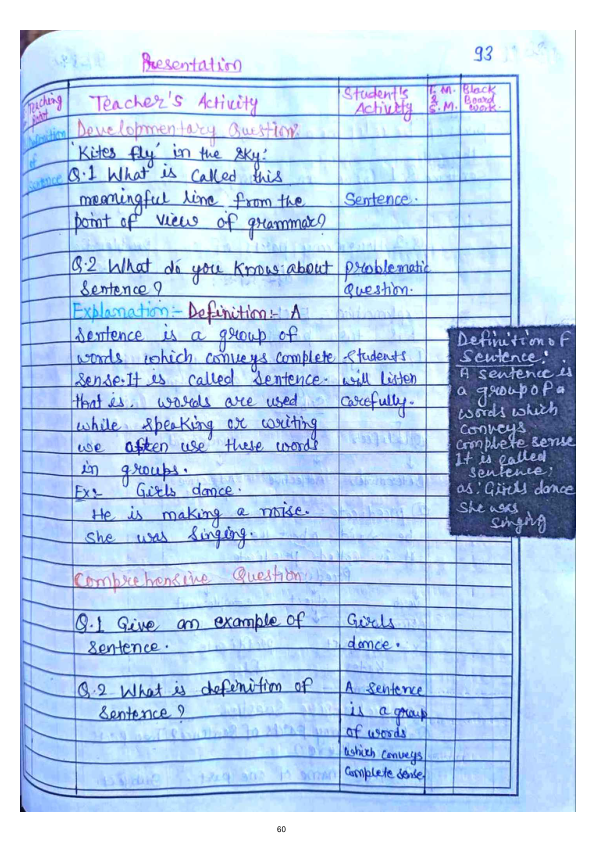 93
Presentation
Teaching point
Teacher's Activity
Student's Activity
T. M. & S. M.
Black Board work.
Definition of Sentence
Developmentary Question:
'Kites fly' in the sky:
Q.1 What is called this
meaningful line from the
point of view of grammar?
Sentence.
Q.2 What do you know about
Sentence?
Problematic
Question.
Explanation:- Definition:- A
Sentence is a group of
words which conveys complete
Sense. It is called Sentence.
that is. words are used
while speaking or writing
we often use these words
in groups.
Students
will listen
carefully.
Ex:- Girls dance.
He is making a noise.
She was Singing.
Definition of
Sentence:
A sentence is
a group of a
words which
conveys
complete sense
It is called
sentence;
as: Girls dance
She was
Singing
Comprehensive Question
Q.1 Give an example of
Sentence.
Girls
dance.
Q.2 What is definition of
Sentence?
A Sentence
is a group
of words
which conveys
Complete Sense.
60